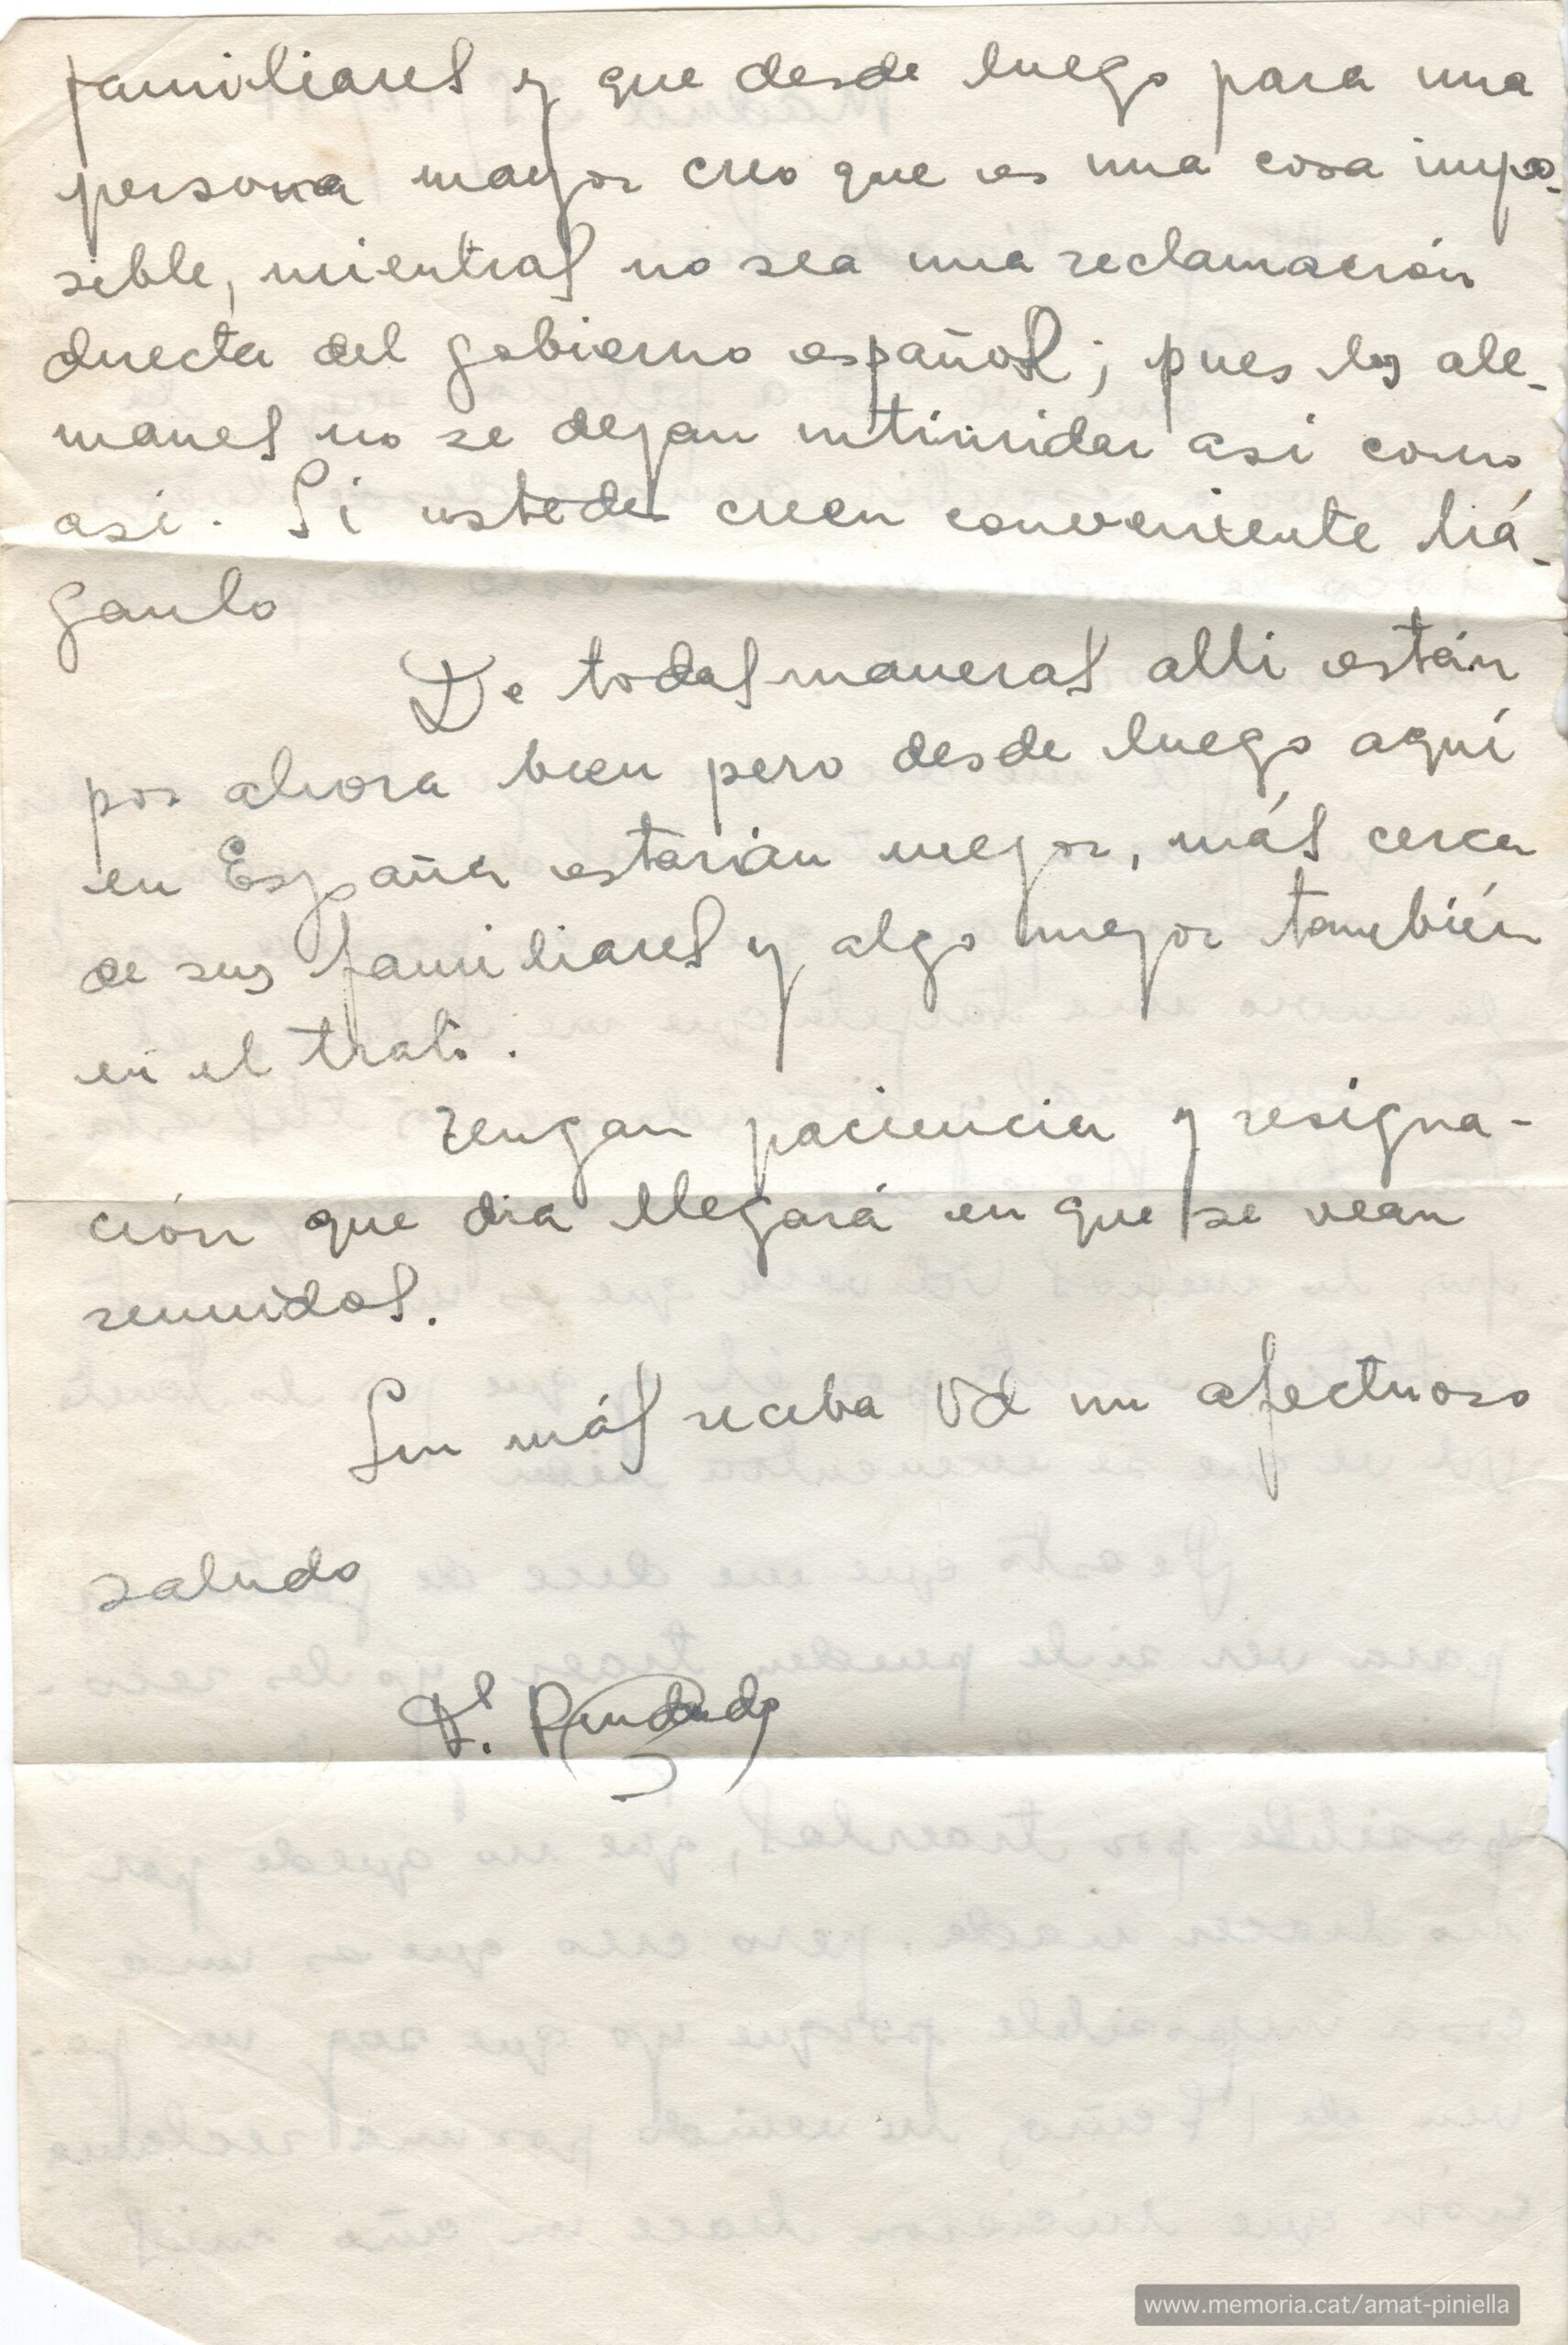 familiares y que desde luego para una
persona mayor creo que es una cosa impo-
sible, mientras no sea una reclamación
directa del gobierno español; pues los ale-
manes no se dejan intimidar asi como
asi. Si ustedes creen conveniente há-
ganlo
De todas maneras alli están
por ahora bien pero desde luego aquí
en España estarián mejor, más cerca
de sus familiares y algo mejor también
en el trato.
Tengan paciencia y resigna-
ción que dia llegará en que se vean
reunidos.
Sin más reciba Vd un afectuoso
saludo
www.memoria.cat/amat-piniella